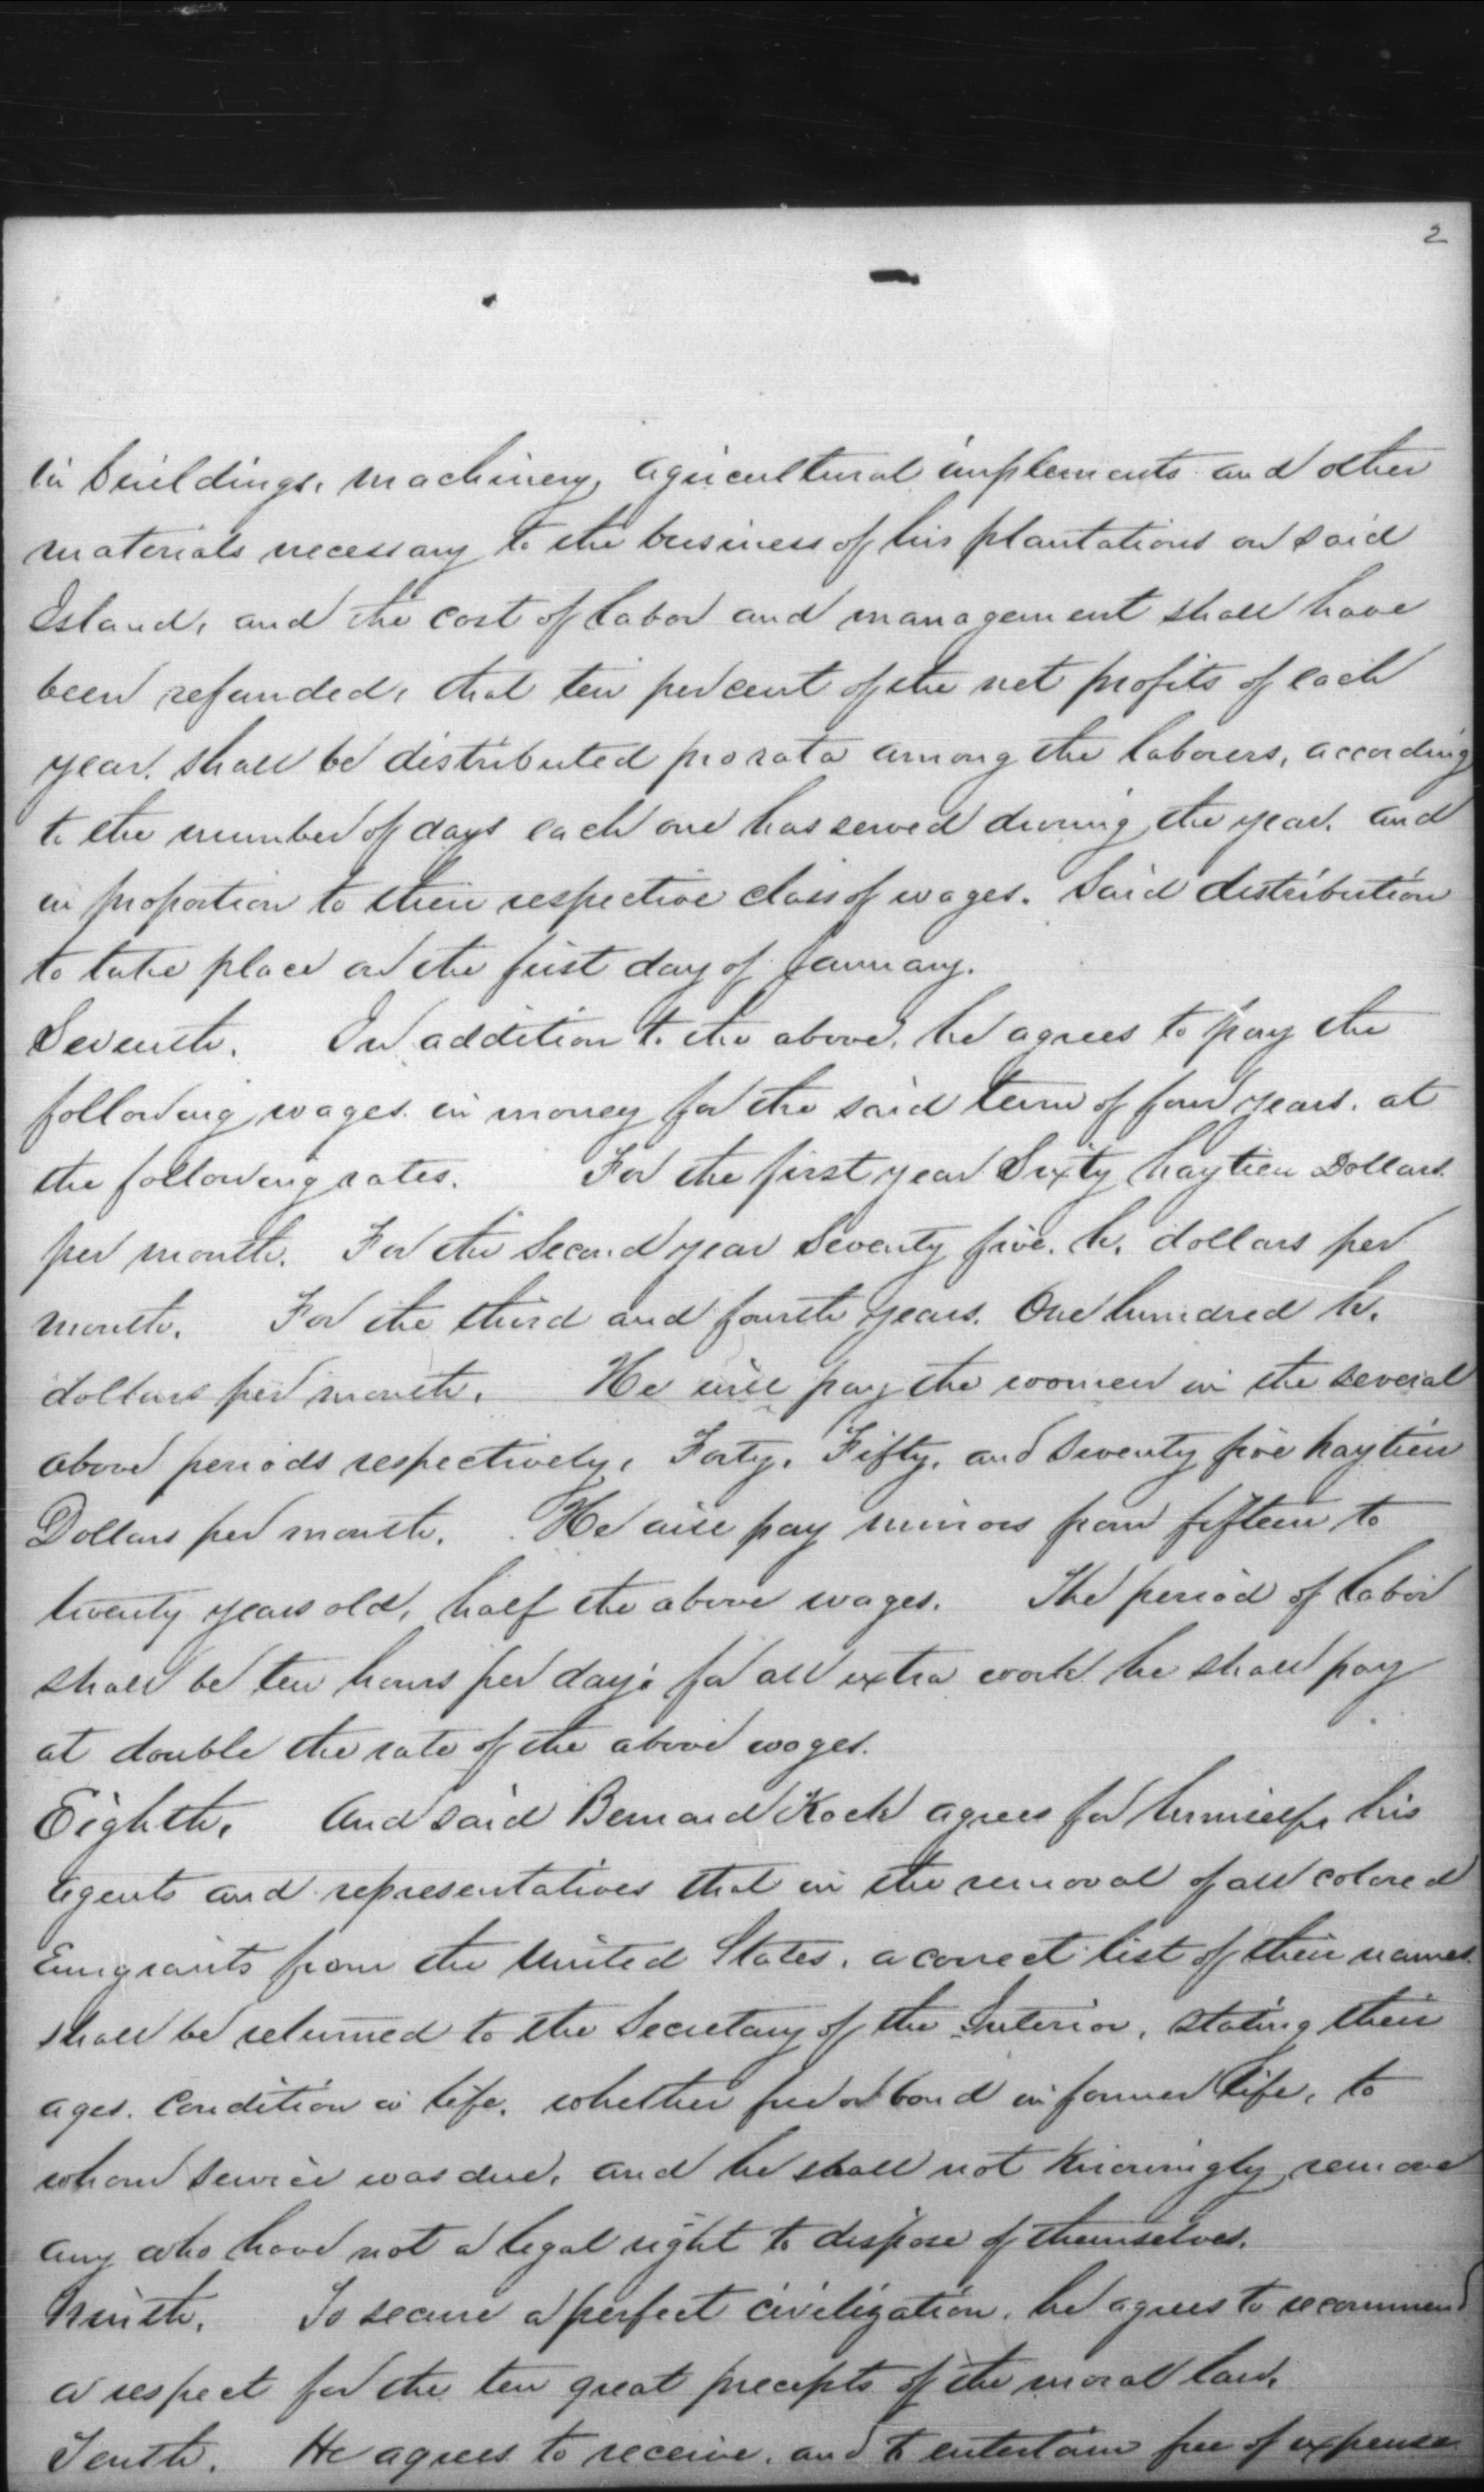 2
in buildings, machinery, agricultural implements and other
materials necessary to the business of his plantations on said
Island, and the cost of labor and management shall have
been refunded, that ten per cent of the net profits of each
year, shall be distributed pro rata among the laborers, according
to the number of days each one has served during the year, and
in proportion to their respective class of wages. Said distribution
to take place on the first day of January.
Seventh. In addition to the above, he agrees to pay the
following wages in money for the said term of four years, at
the following rates. For the first year Sixty haytien Dollars
per month. For the Second year Seventy five. h. dollars per
month. For the third and fourth years. One hundred h.
dollars per month. He will pay the women in the several
above periods respectively, Forty, Fifty, and Seventy five haytien
Dollars per month. He will pay minors from fifteen to
twenty years old, half the above wages. The period of labor
shall be ten hours per day; for all extra work he shall pay
at double the rate of the above wages.
Eighth. And said Bernard Kock agrees for himself, his
agents and representatives that in the removal of all colored
Emigrants from the United States, a correct list of their names
shall be returned to the Secretary of the Interior, stating their
ages. Condition in life, whether free or bond in former life, to
whom service was due, and he shall not knowingly remove
any who have not a legal right to dispose of themselves.
Ninth. To secure a perfect civilization, he agrees to recommend
a respect for the ten great precepts of the moral law.
Tenth. He agrees to receive, and to entertain free of expense